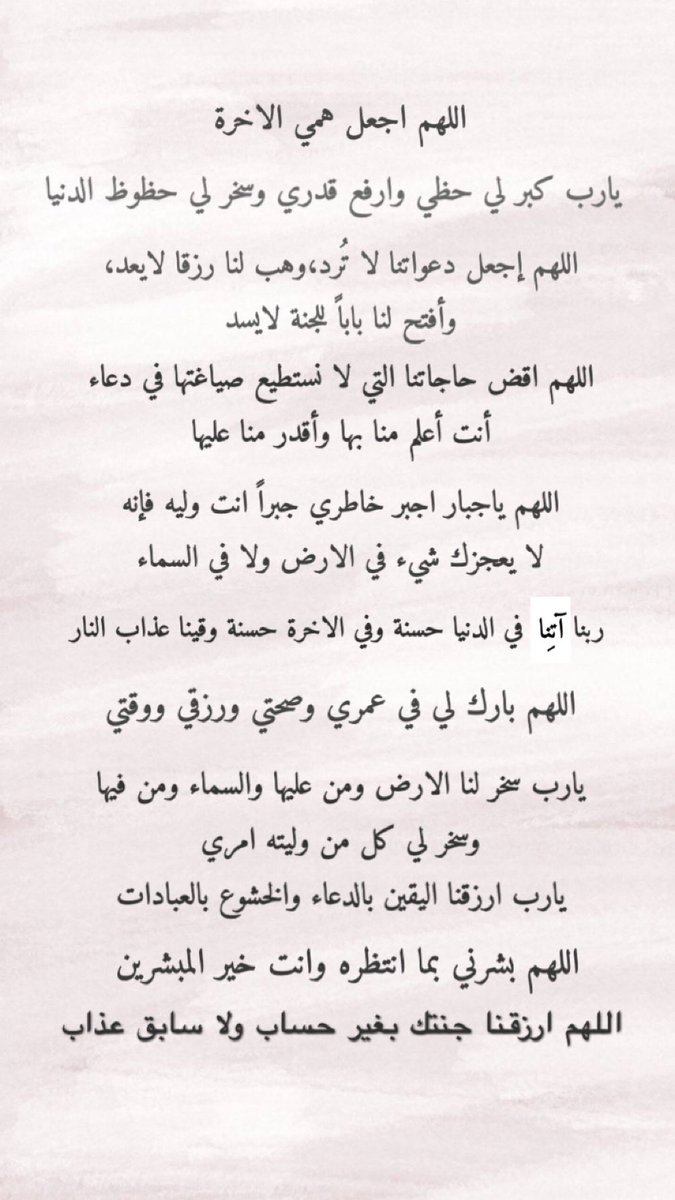 اللهم اجعل همي الاخرة
يارب كبر لي حظي وارفع قدري وسخر لي حظوظ الدنيا
اللهم إجعل دعواتنا لا تُرد،وهب لنا رزقا لايعد،
وأفتح لنا باباً للجنة لايسد
اللهم اقض حاجاتنا التي لا نستطيع صياغتها في دعاء
أنت أعلم منا بها وأقدر منا عليها
اللهم ياجبار اجبر خاطري جبراً انت وليه فإنه
لا يعجزك شيء في الارض ولا في السماء
ربنا آتِنا في الدنيا حسنة وفي الاخرة حسنة وقينا عذاب النار
اللهم بارك لي في عمري وصحتي ورزقي ووقتي
يارب سخر لنا الارض ومن عليها والسماء ومن فيها
وسخر لي كل من وليته امري
يارب ارزقنا اليقين بالدعاء والخشوع بالعبادات
اللهم بشرني بما انتظره وانت خير المبشرين
اللهم ارزقنا جنتك بغير حساب ولا سابق عذاب